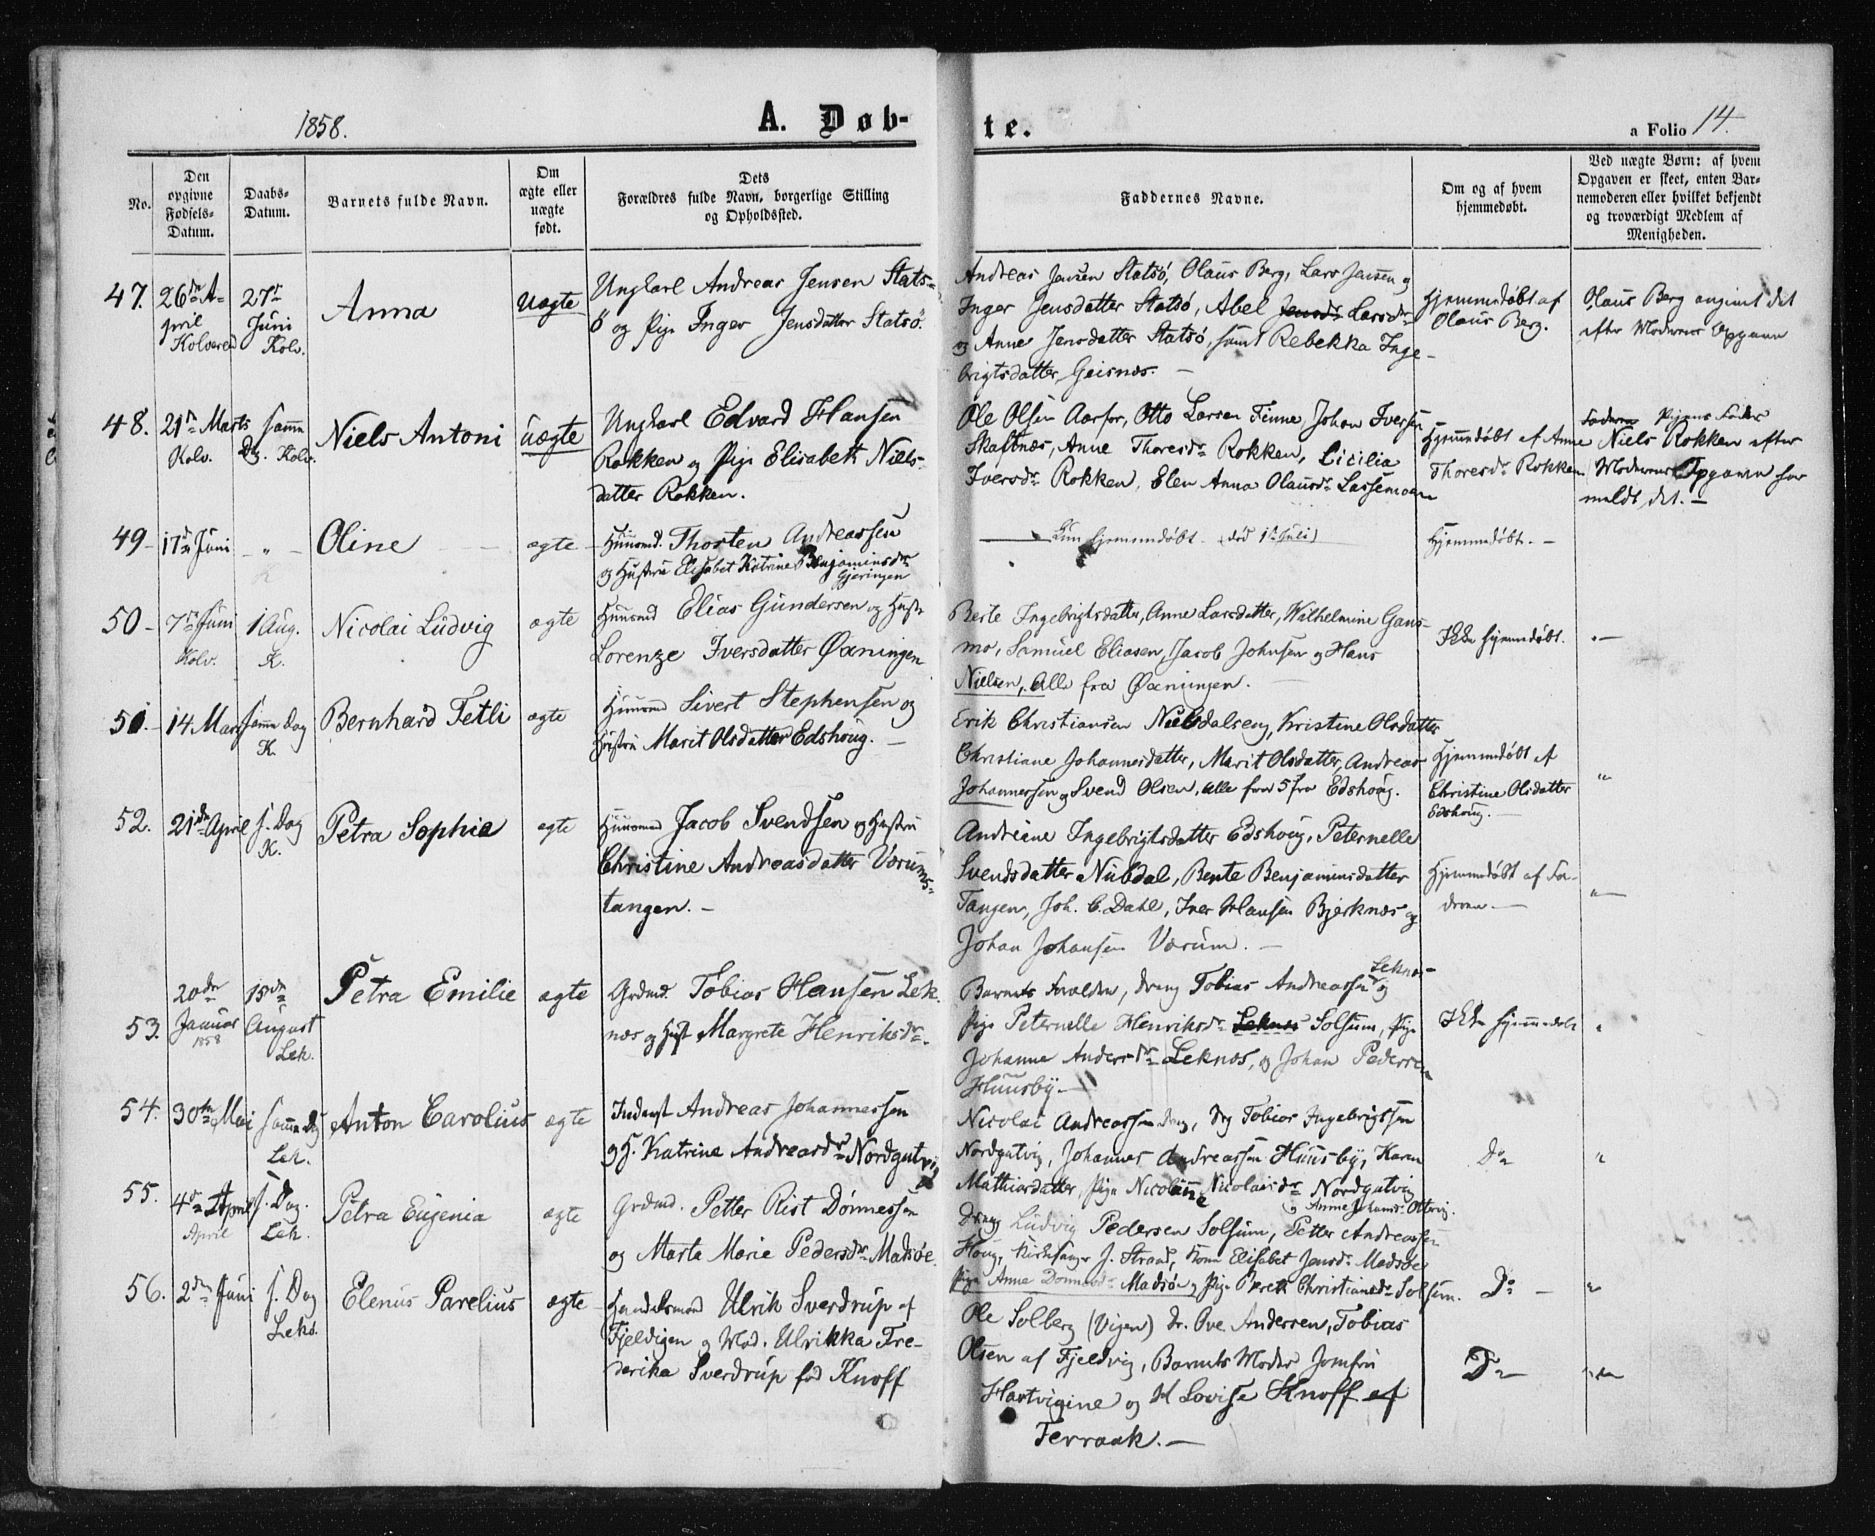 1858.
A. Døb-
te.
a Folio 14.
No.
Den
opgivne
Fødsels-
Datum.
Daabs-
Datum.
Barnets fulde Navn.
Om
ægte eller
uægte
født.
Dets
Forældres fulde Navn, borgerlige Stilling
og Opholdssted.
Faddernes Navne.
Om og af hvem
hjemmedøbt.
Ved uægte Børn: af hvem
Opgaven er skeet, enten Bar-
nemoderen eller hvilket bekjendt
og troværdigt Medlem af
Menigheden.
47. 26de A-
pril
Kolvered
27de
Juni
Kolv.
Anna
uægte
Ungkarl Andreas Jensen Stats-
ö og Pige Inger Jensdatter Statsö.
Andreas Jensen Statsö, Olaus Berg, Lars Jensen og
Inger Jensdatter Statsö, Abel Jensdr Larsdr
og Anne Jensdatter Statsö, samt Rebekka Inge-
brigtsdatter Geisnæs. —
Hjemmedøbt af
Olaus Berg.
Olaus Berg angivet det
efter Moderens Opgave
48. 21de Marts
Kolv.
samme
Dg. Kolv.
Niels Antoni
uægte
Ungkarl Edvard Hansen
Rokken og Pige Elisabeth Niels-
datter Rokken.
Ole Olsen Aarfor, Otto Larsen Finne, Johan Iversen
Skaftnæs, Anne Thoresdr Rokken, Cicilia
Iversdr Rokken, Elen Anna Olausdr Lassemoen
Hjemmedøbt af Anne
Thoresdr Rokken
Faderen Pigens Fader
Niels Rokken efter
Moderens Opgave har
meldt det. —
49 — 17de Juni — " —
Oline
ægte
Huusmd. Thosten Andreassen
og Hustru Elisabet Katrine Benjaminsdr
Gjeringen
Kun hjemmedøbt. (død 1ste Juli)
Hjemmedøbt. —
50 — 7de Juni
Kolv.
1 Aug.
K.
Nicolai Ludvig
ægte
Huusmd Elias Gundersen og Hustr
Lorenze Iversdatter Øxningen
Berte Ingebrigtsdatter, Anne Larsdatter, Wilhelmine Gans-
mo, Samuel Eliasen, Jacob Johnsen og Hans
Nielsen, Alle fra Øxningen. —
Ikke hjemmedøbt.
" —
51. — 14 Mars
samme Dag
K.
Bernhard Tetli
ægte
Huusmd Sivert Stephensen og
Hustru Marit Olsdatter Edshoug. —
Erik Christiansen Nubdalseng, Kristine Olsdatter
Christiane Johannesdatter, Marit Olsdatter, Andreas
Johannessen og Svend Olsen, alle 5 fra Edshoug.
Hjemmedøbt af
Christine Olsdatter
Edshoug. —
"
52. 21de April
s. Dag
K.
Petra Sophie
ægte
Huusmd Jacob Svendsen og Hustru
Christine Andreasdatter Værums-
tangen. —
Andreine Ingebrigtsdatter Edshoug, Peternelle
Svendsdatter Nubdal, Bente Benjaminsdatter
Tangen, Joh. C. Dahl, Iver Hansen Bjerknæs og
Johan Johansen Værum. —
Hjemmedøbt af Fa-
deren —
" —
53. 20de
Januar
1858
15de
August
Lek.
Petra Emilie
ægte
Grdmd. Tobias Hansen Lek-
næs og Hust Margrete Henriksdr.
Barnets Forældre, dreng Tobias Andreassen Leknæs og
Pige Peternelle Henriksdr Leknæs Solsum, Pige
Johanne Andersdr Leknæs, og Johan Pedersen
Huusby. —
Ikke hjemmedøbt
"
54. 30te Mai
samme Dg
Lek.
Anton Carolius
ægte
Inderst Andreas Johannessen
og H. Katrine Andreasdr Nordgutvig
Nicolai Andreassen dreng, Dg Tobias Ingebrigtsen
Nordgutvig, Johannes Andreassen Huusby, Karen
Mathiasdatter, Pige Nicoline Nicolaisdr Nordgutvig
og Anne Johansdr Ottervig.
Do
"
55. 4de April
April
s. Dag.
Lek.
Petra Eugenia
ægte
Grdmd. Petter Rist Dønnessen
og Marta Marie Pedersdr Madsøe.
Dreng Ludvig Pedersen Solsum, Petter Andreassen
Houg, Kirkesanger J. Strand, Kone Elisabet Jensdr Madsøe
Pige Anne Dønnesdr Madsøe og Pige Beret Christiansdr Solsum.
Do —
"
56. 2den Juni
s. Dag
Leka.
Elenus Parelius
ægte
Handelsmand Ulrik Sverdrup af
Fjeldvigen og Mad. Ulrikka Fre-
derika Sverdrup fød Knoff
Ole Solberg (Vigen) dr. Ove Andersen, Tobias
Olsen af Fjeldvig, Barnets Moder Jomfru
Hartvigine og H Lovise Knoff af
Terraak. —
Do
"